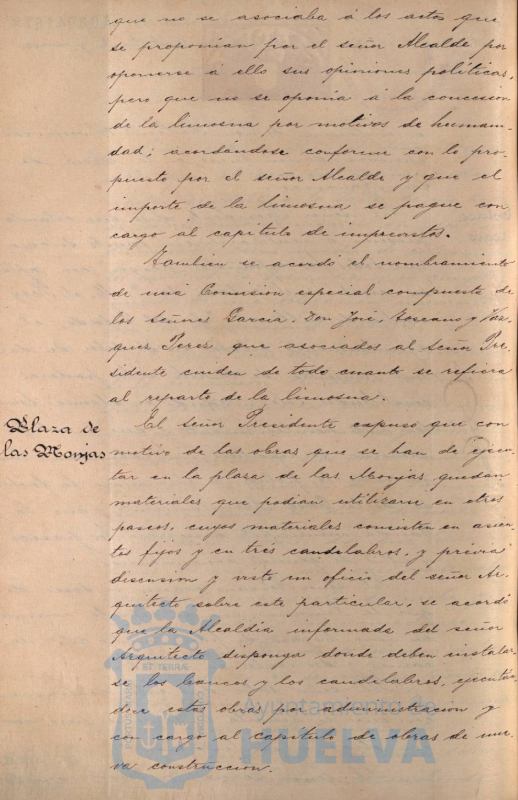 que no se asociaba á los actos que
se proponian por el señor Alcalde por
oponerse á ello sus opiniones politicas,
pero que no se oponia á la concesion
de la limosna por motivos de humani-
dad; acordándose conforme con lo pro-
puesto por el señor Alcalde y que el
importe de la limosna se pague con
cargo al capitulo de imprevistos.
Tambien se acordó el nombramiento
de una Comision especial compuesta de
los señores Garcia, Don José, Toscano y Vaz-
quez Perez que asociados al señor Pre-
sidente cuiden de todo cuanto se refiera
al reparto de la limosna.
Plaza de
las Monjas
El señor Presidente expuso que con
motivo de las obras que se han de ejecu-
tar en la plaza de las Monjas quedan
materiales que podian utilizarse en otros
paseos, cuyos materiales consisten en asien-
tos fijos y en tres candelabros, y prévia
discusion y visto un oficio del señor Ar-
quitecto sobre este particular, se acordó
que la Alcaldia informada del señor
Arquitecto disponga donde deben instalar-
se los bancos y los candelabros, ejecután-
dose estas obras por administracion y
con cargo al capitulo de obras de nue-
va construccion.
Ayuntamiento de
HUELVA